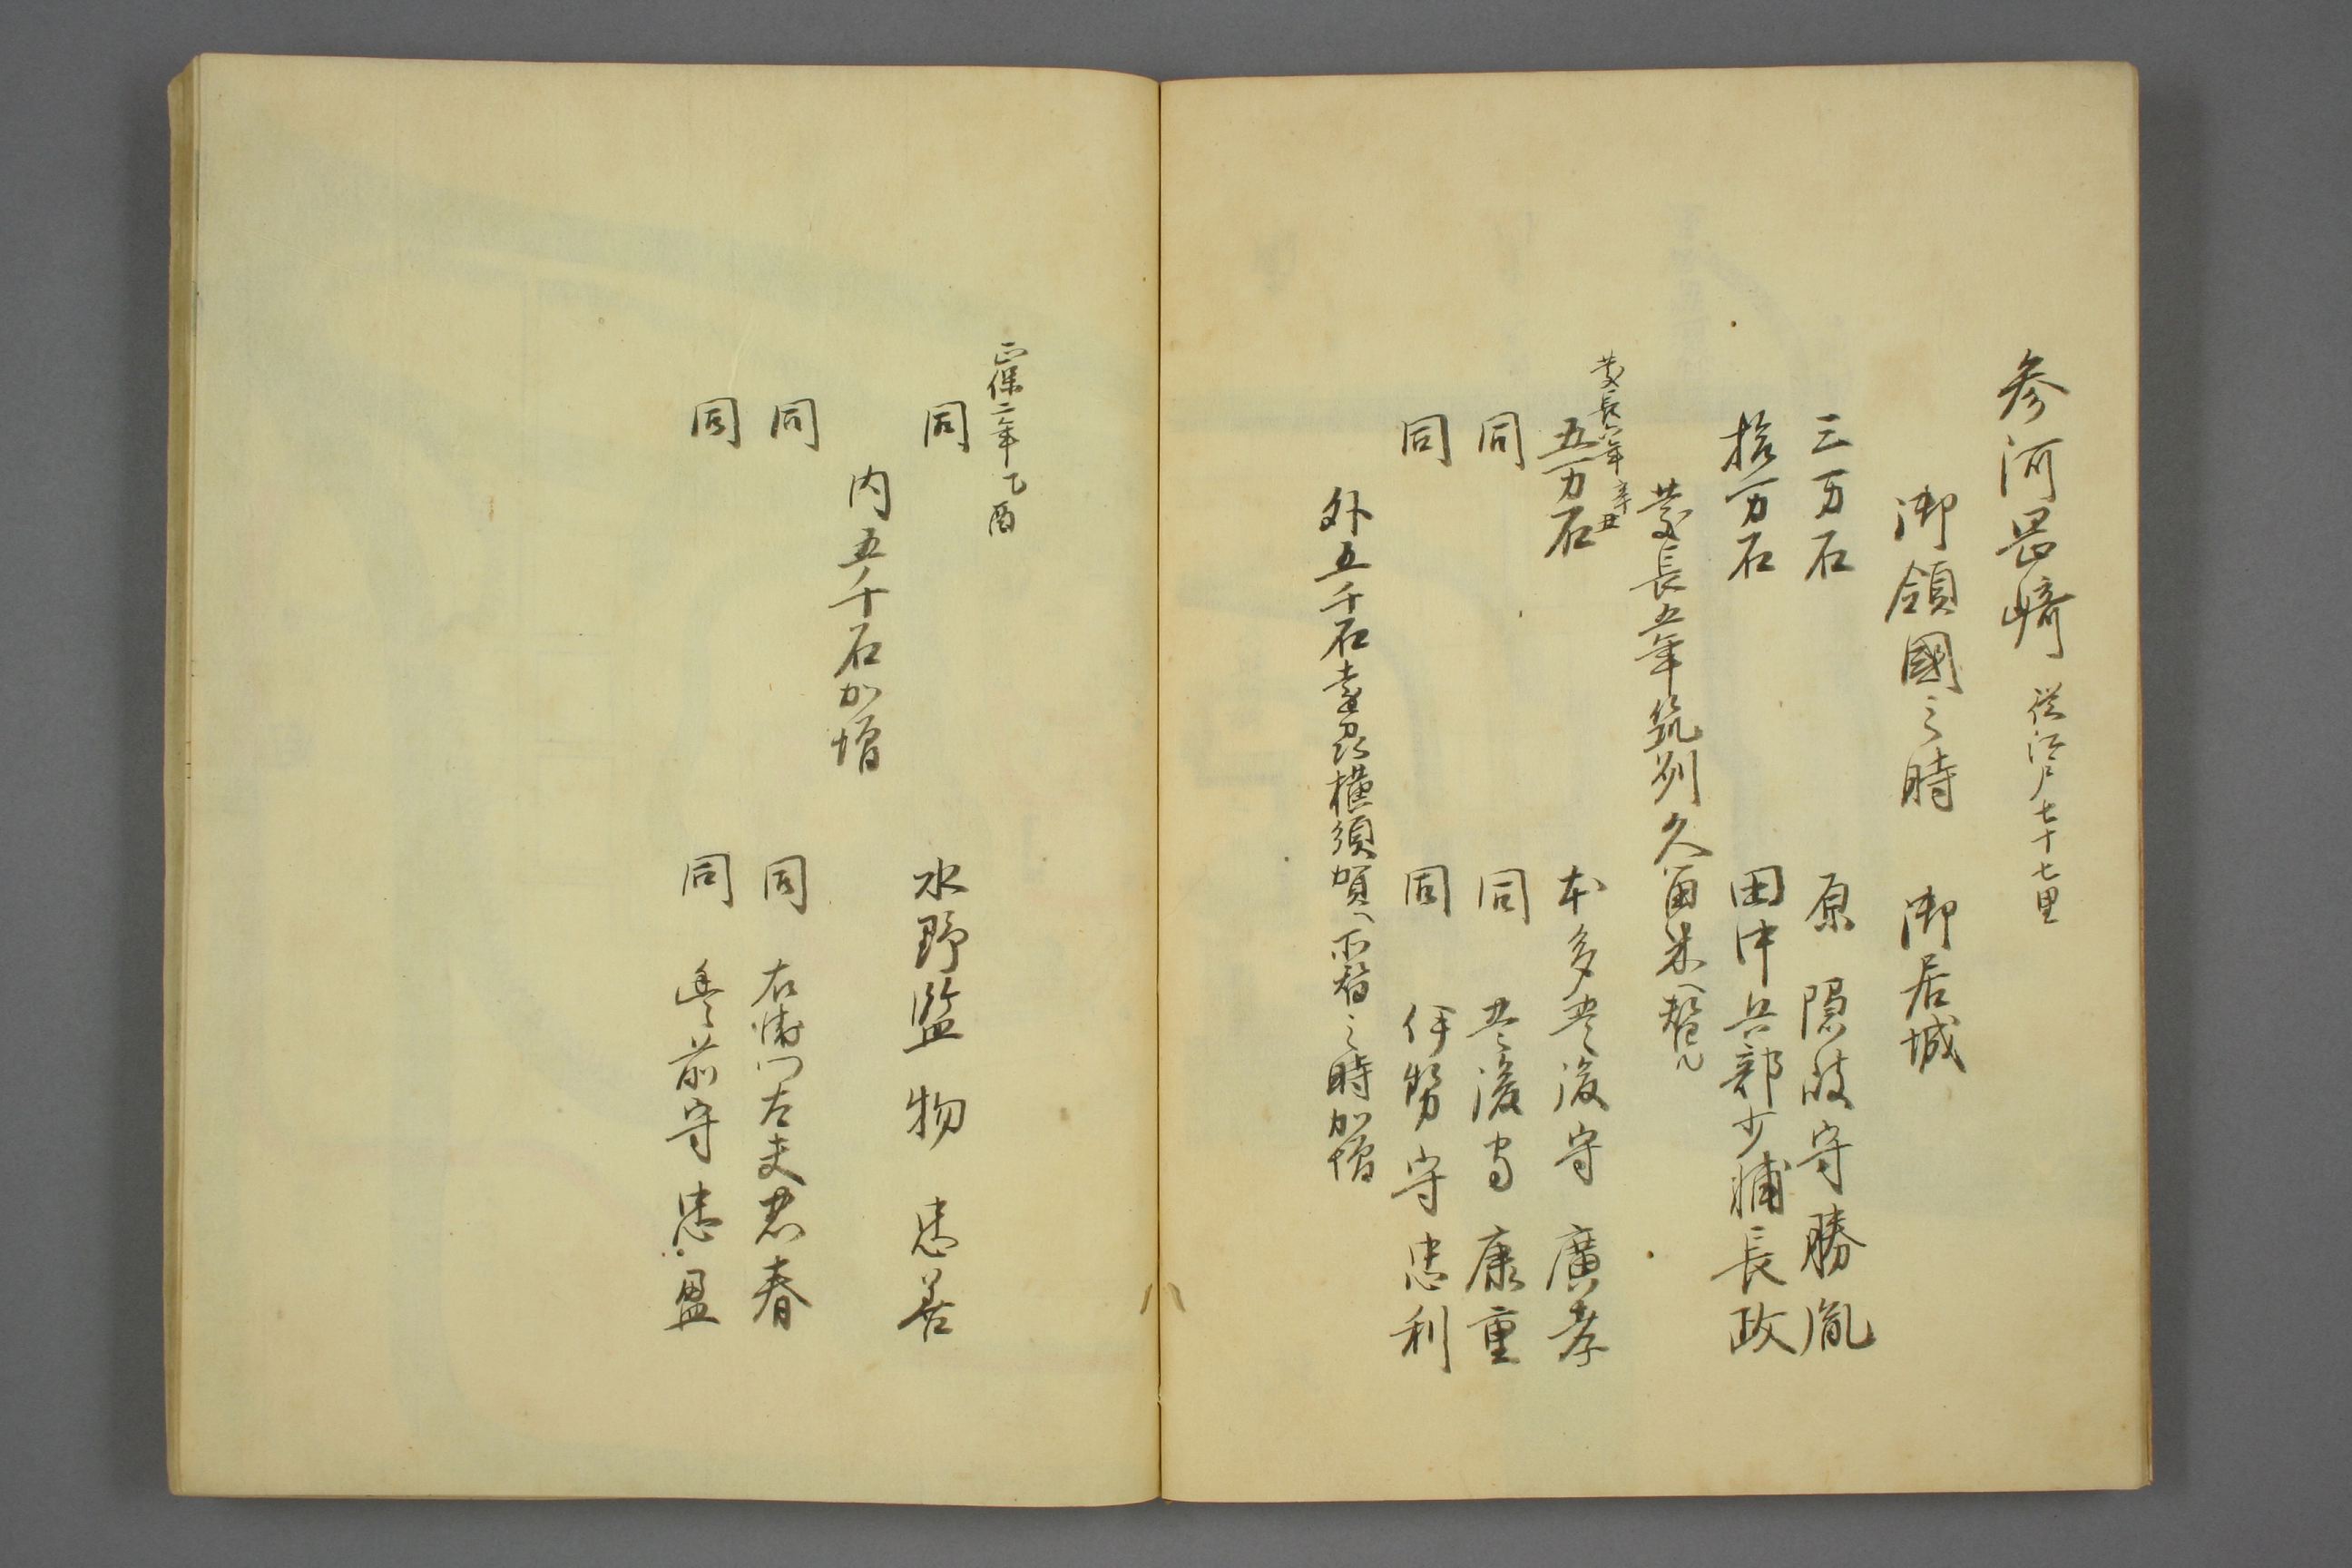 参河岡崎 従江戸七十七里
御領國之時 御居城
三万石 原 隠岐守勝胤
拾万石 田中兵部少輔長政
慶長五年筑列久留米へ替ル
慶長六年辛丑
五万石 本多豊後守 廣孝
同 同 豊後守 康重
同 同 伊勢守忠利
外五千石遠刕横須賀へ所替之時加増
正保二年乙酉
同 水野監物 忠善
内五千石加増
同 同 右衛門大夫忠春
同 同 豊前守忠盈